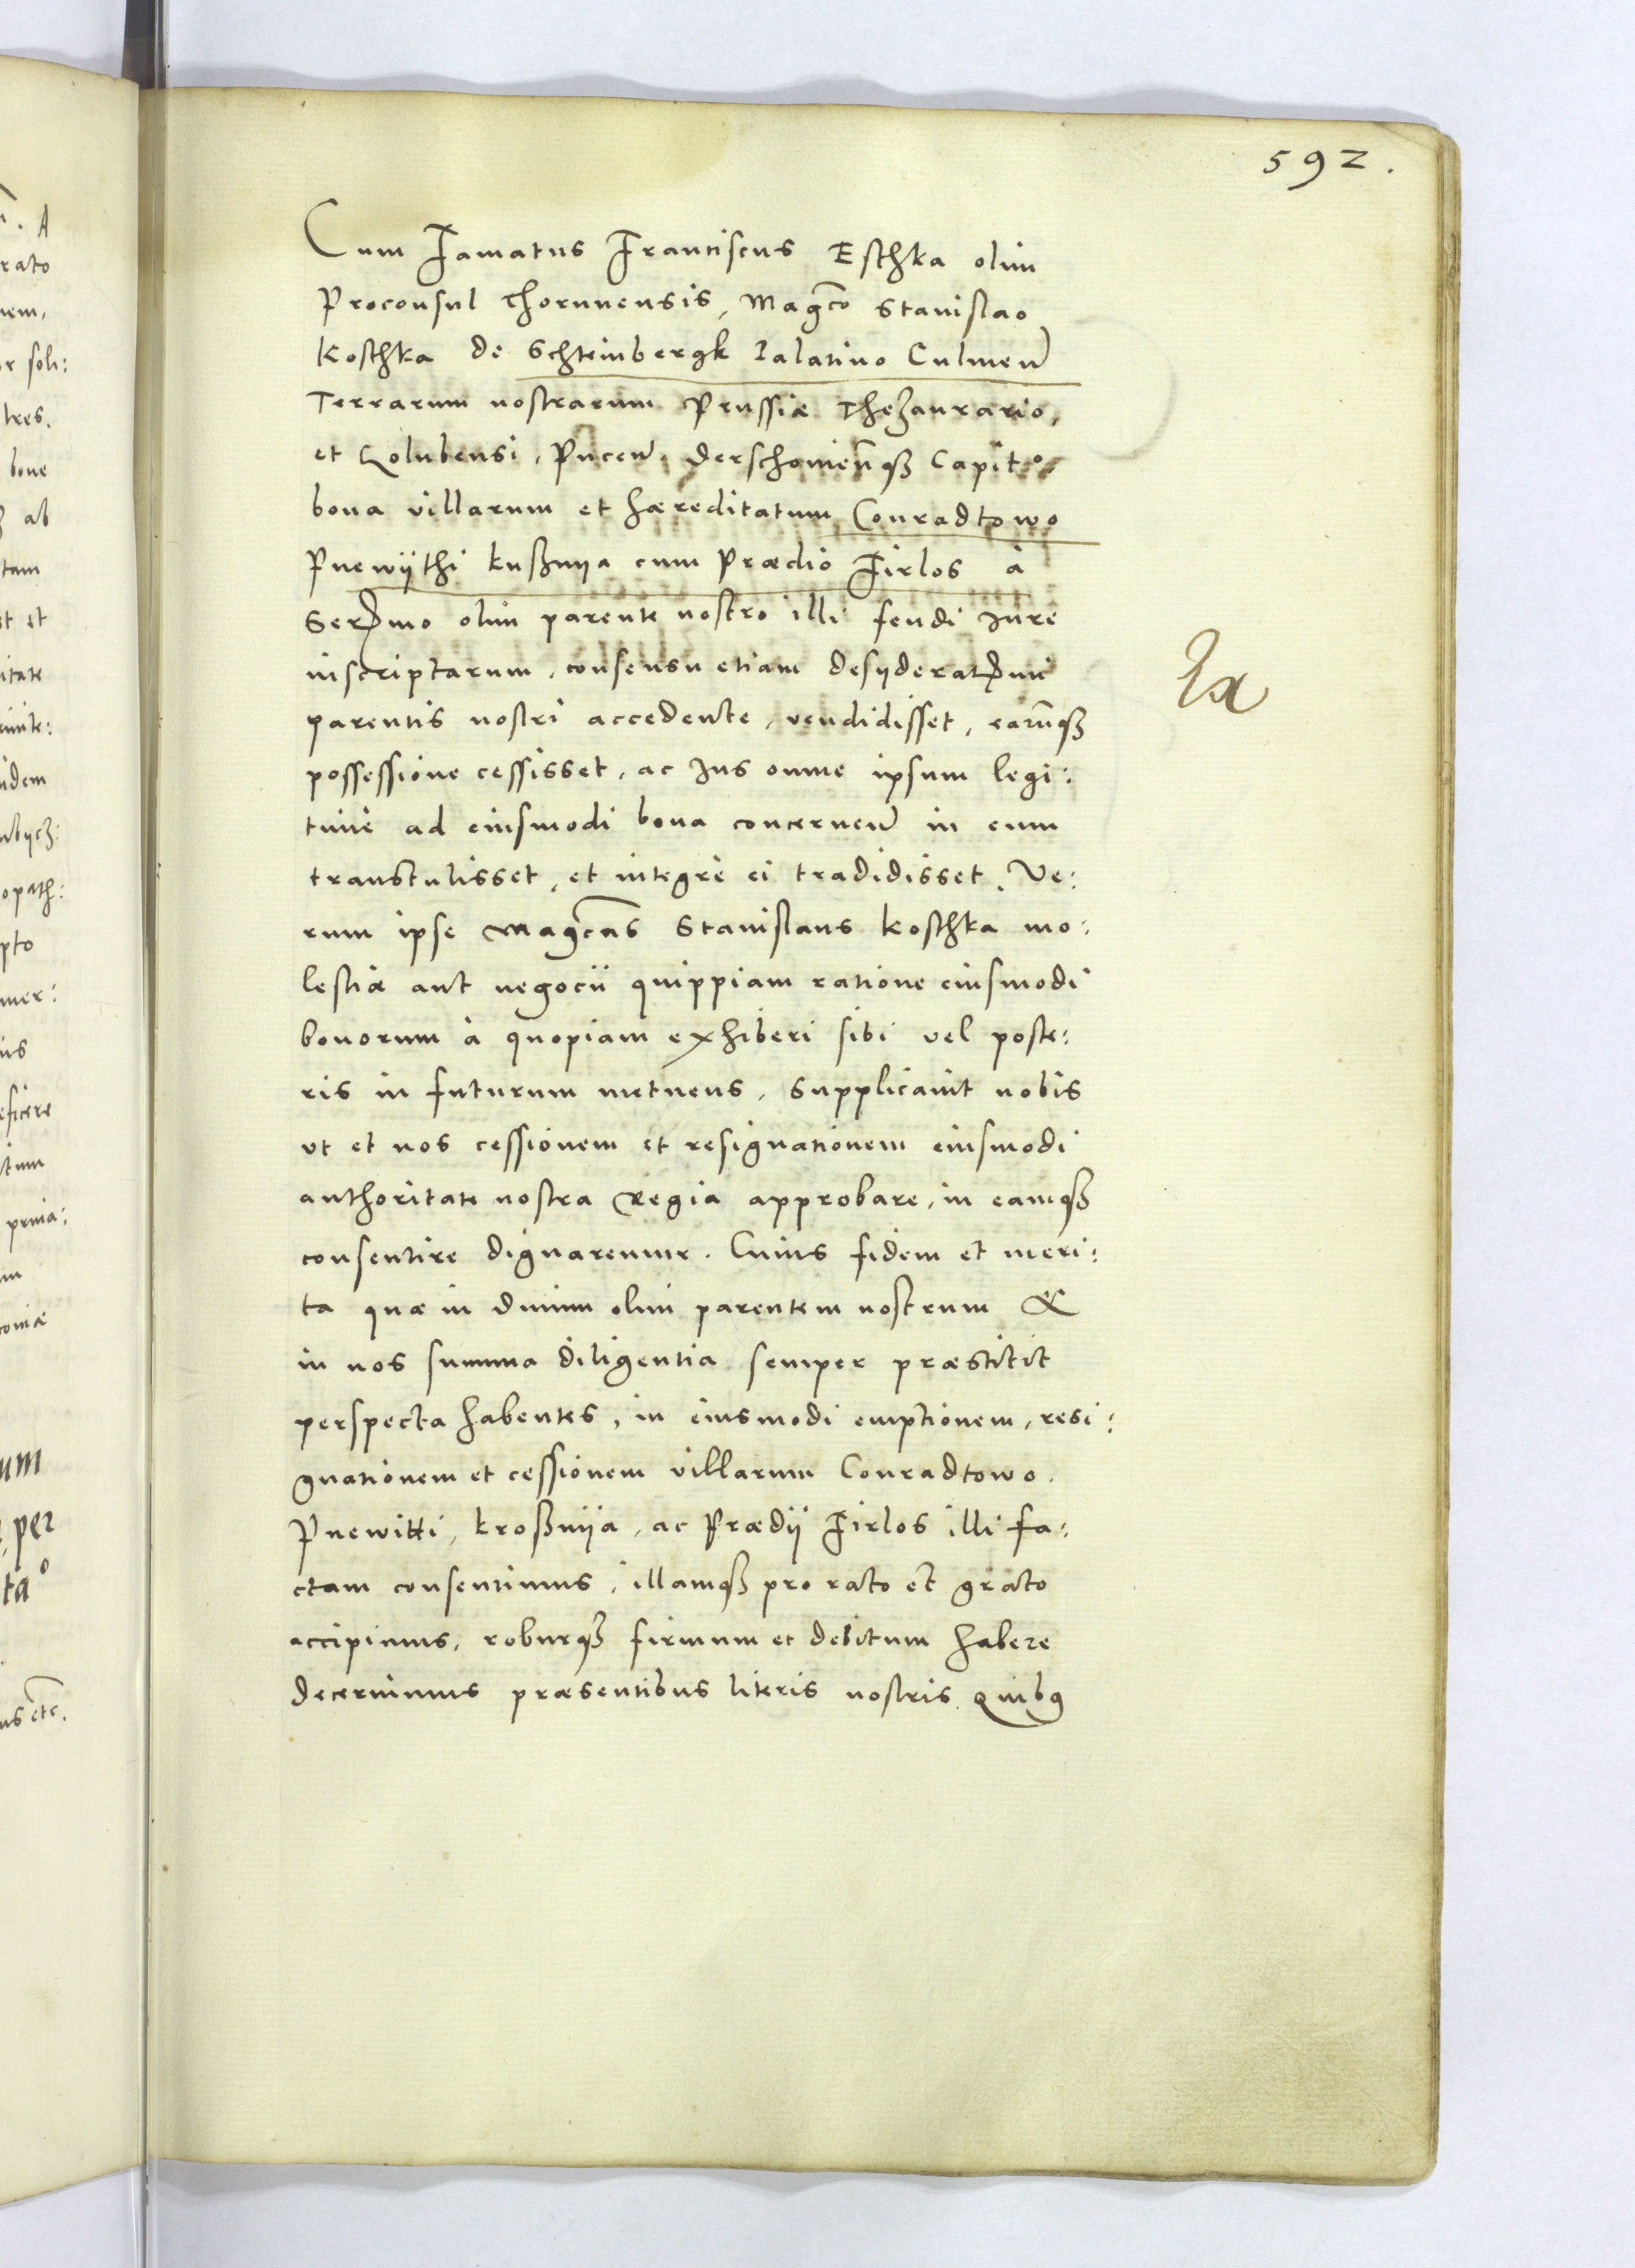 592.
Cum Famatus Franciscus Eschka olim
Proconsul Thorunensis, Mag͞co Stanislao
Koschka de Schteinbergk Palatino Culmen͂
Terrarum nostrarum Prussiæ Thezaurario,
et Golubensi, Pucen͂, Derschouien͂qꝫ Capit͞o
bona villarum et hæreditatum Conradtowo
Pnewÿthi kußnyia cum Prædio Firlos à
Ser͞mo olim parente nostro illi feudi iure
inscriptarum, consensu etiam desyderat͞mi
parentis nostri accedente, vendidisset, earūqꝫ
possessione cessisset, ac Jus omne ipsum legi:
timè ad eiusmodi bona concernen͂ in eum
transtulisset, et integrè ei tradidisset. Ve:
rum ipse Mag͞cus Stanislaus Koschka mo:
lestiæ aut negocii quippiam ratione eiusmodi
bonorum à quopiam exhiberi sibi vel poste:
ris in futurum metuens, supplicauit nobis
vt et nos cessionem et resignationem eiusmodi
authoritate nostra Regia approbare, in eamqꝫ
consentire dignaremur. Cuius fidem et meri:
ta quæ in diuum olim parentem nostrum &
in nos summa diligentia semper præstitit
perspecta habentes, in eiusmodi emptionem, resi:
gnationem et cessionem villarum Conradtowo.
Pnewitti, kroßnyia, ac Prædÿ Firlos illi fa:
ctam consentimus, illamqꝫ pro rato et grato
accipimus, roburqꝫ firmum et debitum habere
decernimus præsentibus literis nostris, Quibꝰ